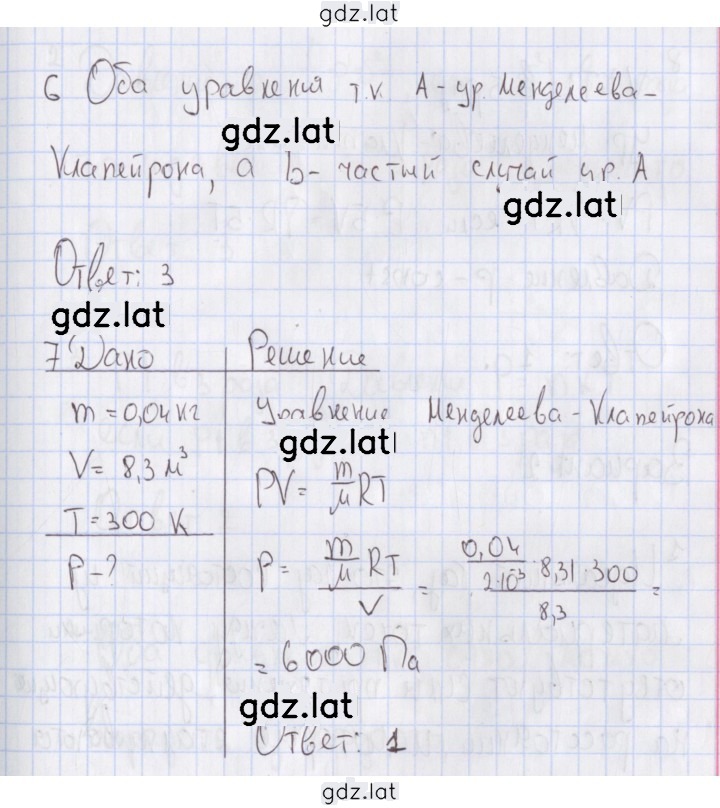 gdz.lat
6 Оба уравнения т.к. А-ур. Менделеева-
gdz.lat
Клапейрона, а b- частый случай ур. А
gdz.lat
Ответ: 3
gdz.lat
7 Дано
m = 0,04 кг
V = 8,3 м³
T = 300 К
P - ?
Решение
Уравнение Менделеева-Клапейрона
gdz.lat
PV = m/μ RT
P = (m/μ RT)/V = (0,04/2·10⁻³ · 8,31 · 300)/8,3 =
= 6000 Па
gdz.lat
Ответ: 1
gdz.lat